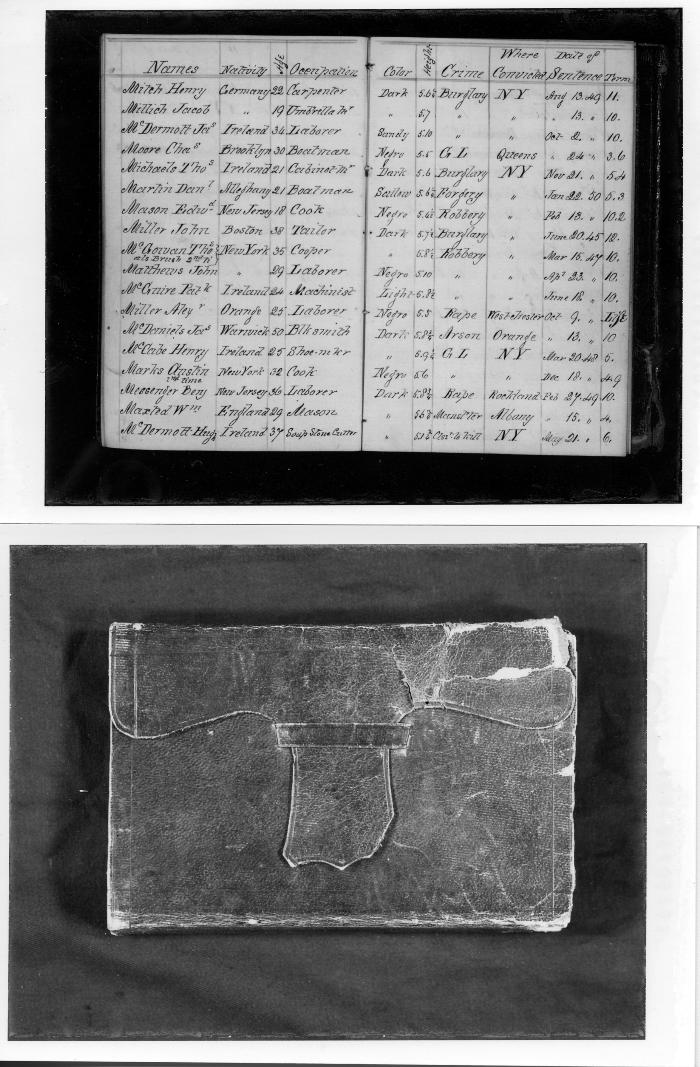 Names Nativity Age Occupation Color Height Crime Where Convicted Date of Sentence Term
Mitch Henry Germany 22 Carpenter Dark 5.6½ Burglary NY Aug 13. 49 11.
Millich Jacob " 19 Umbrella Mr " 5.7 " " " 13. " 10.
McDermott Jas Ireland 34 Laborer Sandy 5.10 " " Oct 2. " 10.
Moore Chas Brooklyn 30 Boatman Negro 5.5 G L Queens " 24 " 3.6
Michaels Thos Ireland 21 Cabinet Mr Dark 5.6 Burglary NY Nov 21. " 5.4
Martin Danl Alleghany 21 Boatman Sallow Forgery " Jan 22. 50 5.3
Mason Edwd New Jersey 18 Cook Negro Robbery " Feb 13. " 10.2
Miller John Boston 38 Tailor Dark Burglary " June 20. 45 12.
McGowan Thos New York 35 Cooper " Robbery " Mar 15. 47 10.
als Brush 2nd
Matthews John " 29 Laborer Negro 5.10 " " Apl 23. " 10.
McGuire Patk Ireland 24 Machinist Light " " June 18. " 10.
Miller Alexr Orange 25 Laborer Negro 5.5 Rape West-Chester Oct 9. " Life
McDaniels Jas Warwick 50 Blksmith Dark Arson Orange " 13. " 10
McCabe Henry Ireland 25 Shoe-mkr " G L NY Mar 20. 48 5.
Marks Austin New York 32 Cook Negro 5.6 " " Dec 18. " 4.9
2nd time
Messenger Benj New Jersey 36 Laborer Dark Rape Rockland Feb 27. 49 10.
Maxted Wm England 29 Mason " Mansl'ter Albany " 15. " 4.
McDermott Hugh Ireland 37 Soap Stone Cutter " NY May 21. " 6.